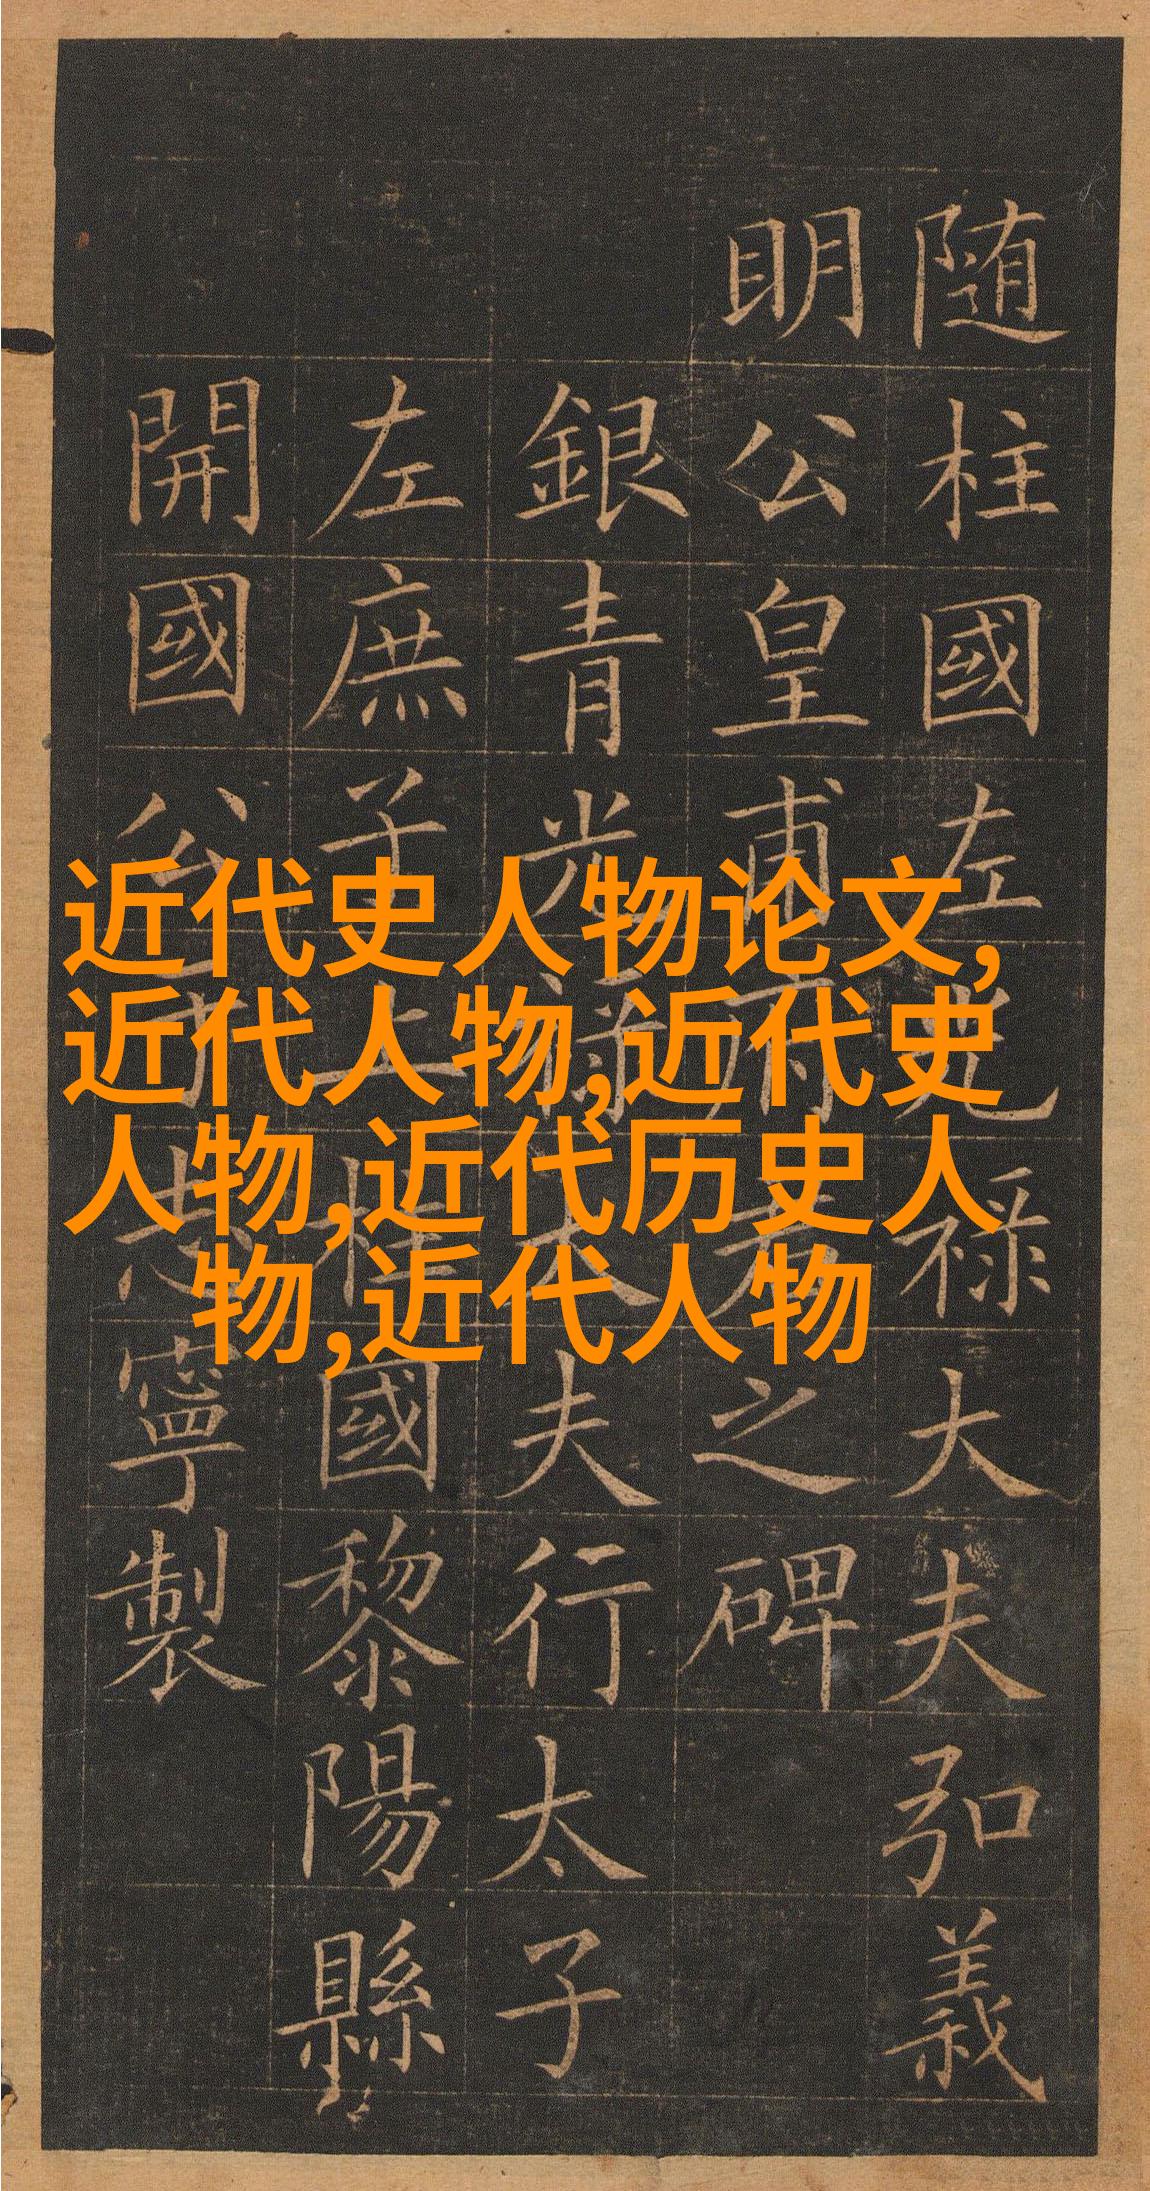 近代史人物论文,
近代人物,近代史
人物,近代历史人
物,近代人物
随柱國左光祿大夫弘義
明公皇甫府君之碑
銀青光祿大夫行太子
左庶子上柱國黎陽縣
開國公于志寧製